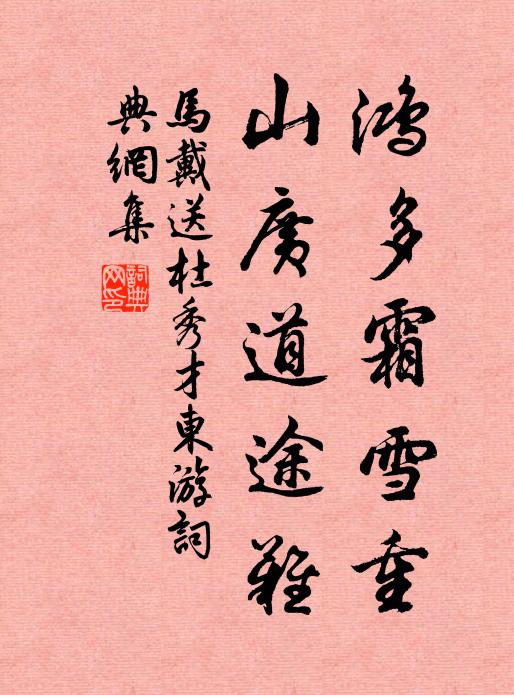 鸿多霜雪重
山廣道途難
馬戴送杜秀才東游詞
典網集
詞典
网印